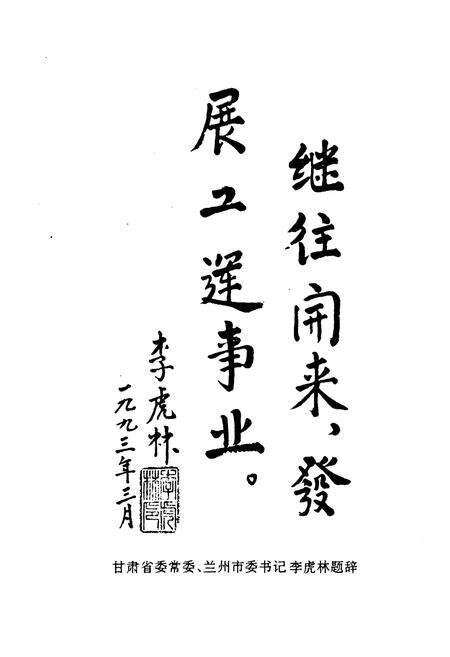 继往开来，發
展工運事业。
李虎林
一九九三年三月
甘肃省委常委、兰州市委书记 李虎林题辞